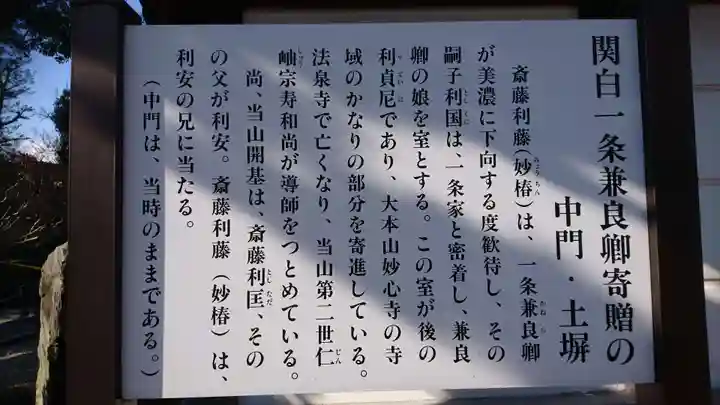 関白一条兼良卿寄贈の
中門・土塀
斎藤利藤(妙椿)は、一条兼良卿
が美濃に下向する度歓待し、その
嗣子利国は、一条家と密着し、兼良
卿の娘を室とする。この室が後の
利貞尼であり、大本山妙心寺の寺
域のかなりの部分を寄進している。
法泉寺で亡くなり、当山第二世仁
岫宗寿和尚が導師をつとめている。
尚、当山開基は、斎藤利匡、その
の父が利安。斎藤利藤(妙椿)は、
利安の兄に当たる。
(中門は、当時のままである。)